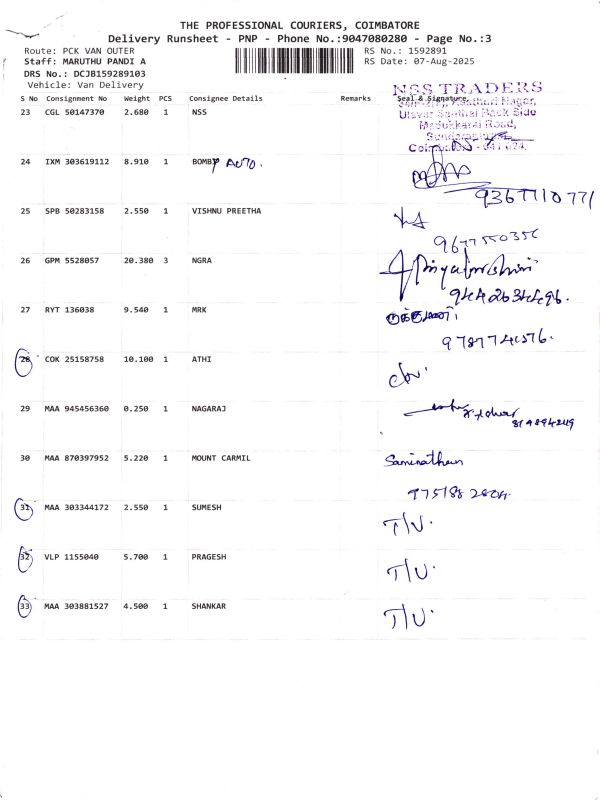 THE PROFESSIONAL COURIERS, COIMBATORE
Delivery Runsheet - PNP - Phone No.:9047080280 - Page No.:3
Route: PCK VAN OUTER RS No.: 1592891
Staff: MARUTHU PANDI A RS Date: 07-Aug-2025
DRS No.: DCJB159289103
Vehicle: Van Delivery
NSS TRADERS
S No Consignment No Weight PCS Consignee Details Remarks Seal & Signature
23 CGL 50147370 2.680 1 NSS
Back Side
Road,
24 IXM 303619112 8.910 1 BOMBY AUTO.
9367710771
25 SPB 50283158 2.550 1 VISHNU PREETHA
9677550356
26 GPM 5528057 20.380 3 NGRA
9442634496.
27 RYT 136038 9.540 1 MRK
9787741576.
28 COK 25158758 10.100 1 ATHI
29 MAA 945456360 0.250 1 NAGARAJ
30 MAA 870397952 5.220 1 MOUNT CARMIL Saminathan
31 MAA 303344172 2.550 1 SUMESH
T/U.
32 VLP 1155040 5.700 1 PRAGESH
T/U.
33 MAA 303881527 4.500 1 SHANKAR
T/U.